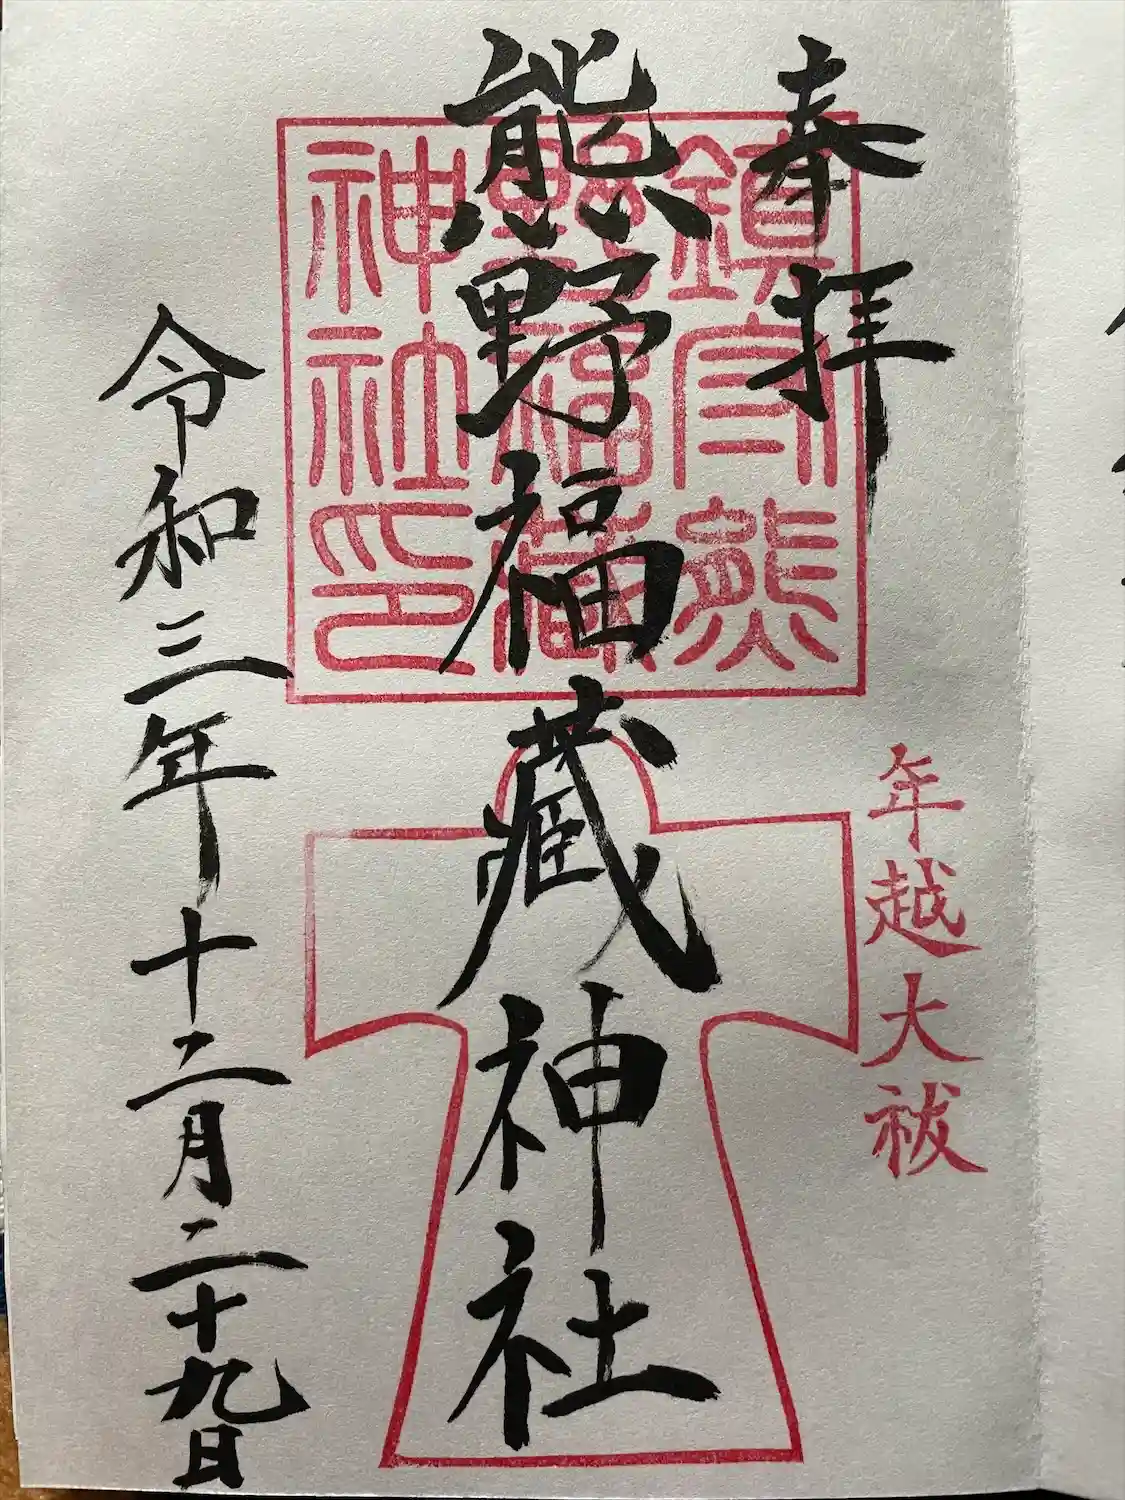 奉拝
年越大祓
熊野福藏神社
鎮守熊
野福藏
神社印
令和三年十二月二十九日